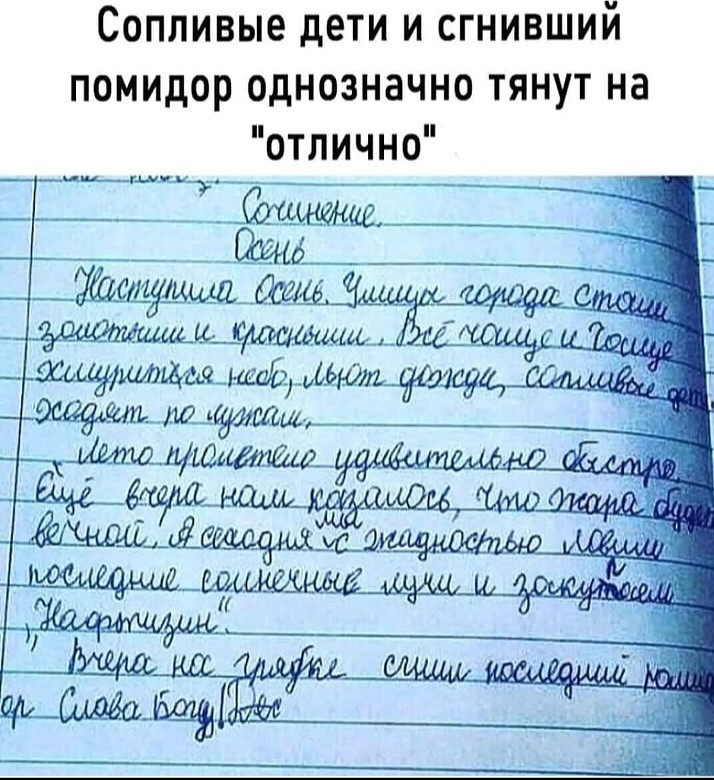 Сопливые дети и сгнивший
помидор однозначно тянут на
"отлично"
Сочинение.
Осень
Наступила Осень. Улицы города Стали
золотыми и красными. Всё чаще и Чаще
хмурит́ся небо, льют дожди, сопливые дети
ходят по лужам.
Лето пролетело удивительно быстро.
Ещё вчера нам казалось, что жара будет
вечной! А сегодня мы с жадностью ловим
последние солнечные лучи и
"Нафтизин".
Вчера на грядке сгнил последний помид
ор Слава Богу!